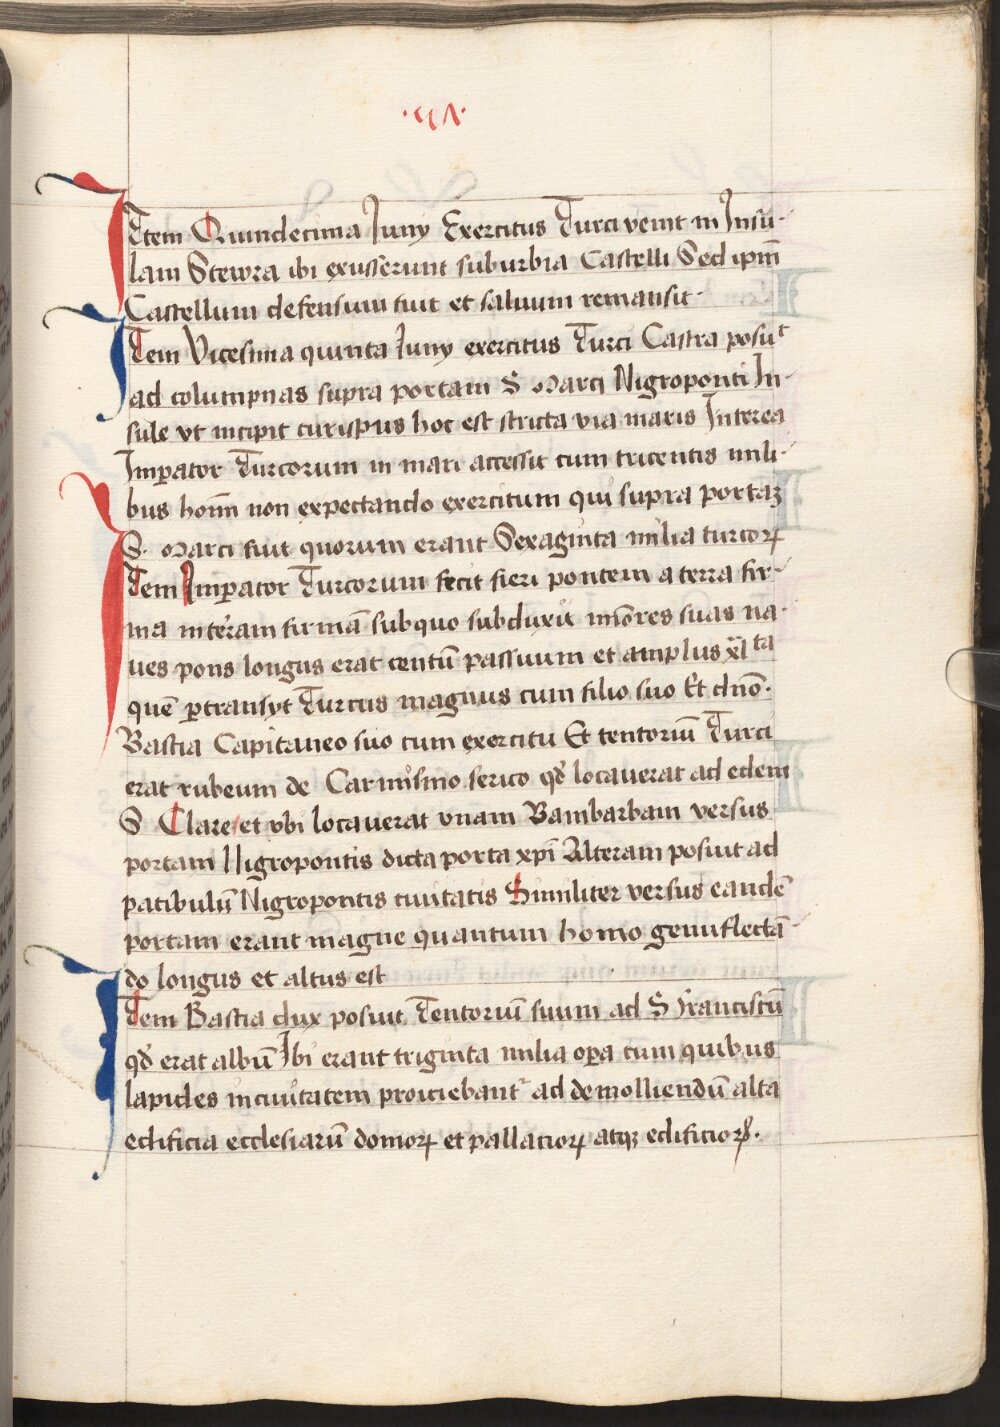 Item Quindecima Juny Exercitus Turci venit in Insu-
lam Stewra ibi exusserunt suburbia Castelli Sed ipm̄
Castellum defensum fuit et saluum remansit·
Item Vicesima quinta Juny exercitus Turci Castra posuᵗ
ad columpnas supra portam S Marci Nigroponti In-
sule vt incipit curispus hoc est stricta via maris Interea
Imꝑator Turcorum in mari accessit cum tricentis mili-
bus homī non expectando exercitum qui supra portaꝫ
S. Marci fuit quorum erant Sexaginta milia turcoꝝ
Item Imꝑator Turcorum fecit fieri pontem a terra fir-
ma in teram firmā sub quo subduxit mīores suas na-
ues pons longus erat centū passuum et amplus xlᵗᵃ
quē ꝑtransyt Turcus magnus cum filio suo Et dnō·
Bastia Capitaneo suo cum exercitu Et tentoriū Turci
erat rubeum de Carmisino serico qđ locauerat ad edem
S Clare et vbi locauerat vnam Bambarbam versus
portam Nigropontis dicta porta xpī Alteram posuit ad
patibulū Nigropontis ciuitatis Similiter versus eandē
portam erant magne quantum homo genuflectā-
do longus et altus est
Item Bastia dux posuit Tentoriū suum ad S Franciscū
qđ erat albū Ibi erant triginta milia oꝑa cum quibus
lapides in ciuitatem proiciebantᵣ ad demolliendū alta
edificia ecclesiarū domoꝝ et pallacioꝝ atqꝫ edificioꝝ·